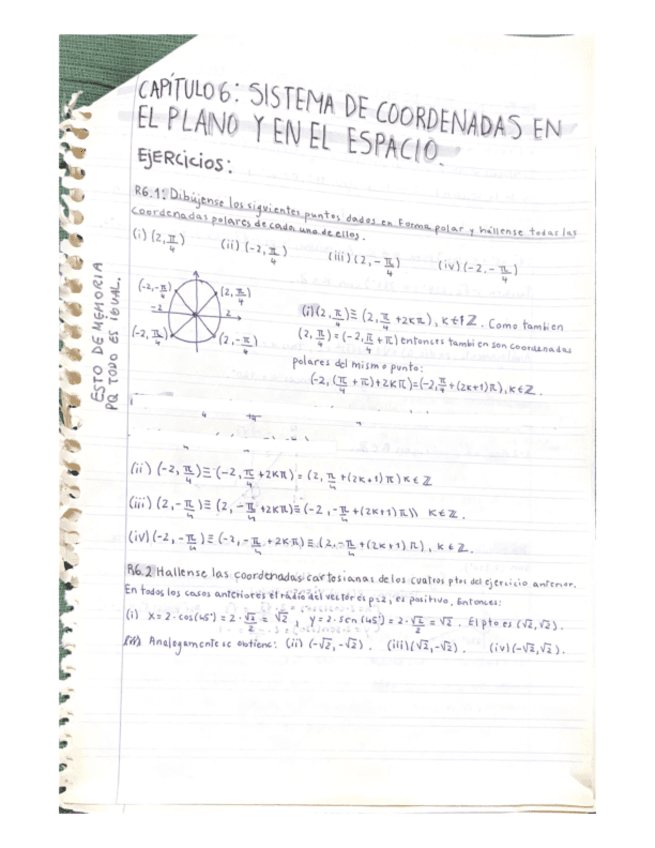 CAPÍTULO 6: SISTEMA DE COORDENADAS EN
EL PLANO Y EN EL ESPACIO.
Ejercicios:
R6.1: Dibújense los siguientes puntos dados en forma polar y hállense todas las
coordenadas polares de cada uno de ellos.
(i) (2, π/4) (ii) (-2, π/4) (iii) (2, -π/4) (iv) (-2, -π/4)
ESTO DE MEMORIA
PQ TODO ES IGUAL.
(-2, -π/4) (2, π/4)
-2 2
(-2, π/4) (2, -π/4)
(i) (2, π/4) ≡ (2, π/4 + 2Kπ), K ∈ ℤ. Como tambien
(2, π/4) = (-2, π/4 + π) entonces tambien son coordenadas
polares del mismo punto:
(-2, (π/4 + π) + 2Kπ) = (-2, π/4 + (2K+1)π), K ∈ ℤ.
(ii) (-2, π/4) ≡ (-2, π/4 + 2Kπ) = (2, π/4 + (2K+1)π) K ∈ ℤ
(iii) (2, -π/4) ≡ (2, -π/4 + 2Kπ) ≡ (-2, -π/4 + (2K+1)π)) K ∈ ℤ.
(iv) (-2, -π/4) ≡ (-2, -π/4 + 2Kπ) ≡ (2, -π/4 + (2K+1)π), K ∈ ℤ.
R6.2 Hallense las coordenadas cartesianas de los cuatros ptos del ejercicio anterior.
En todos los casos anteriores el radio del vector es ρ=2, es positivo. Entonces:
(i) X = 2·cos(45°) = 2·√2/2 = √2, y = 2·sen(45°) = 2·√2/2 = √2. El pto es (√2, √2).
Analogamente se obtiene: (ii) (-√2, -√2). (iii) (√2, -√2). (iv) (-√2, √2).